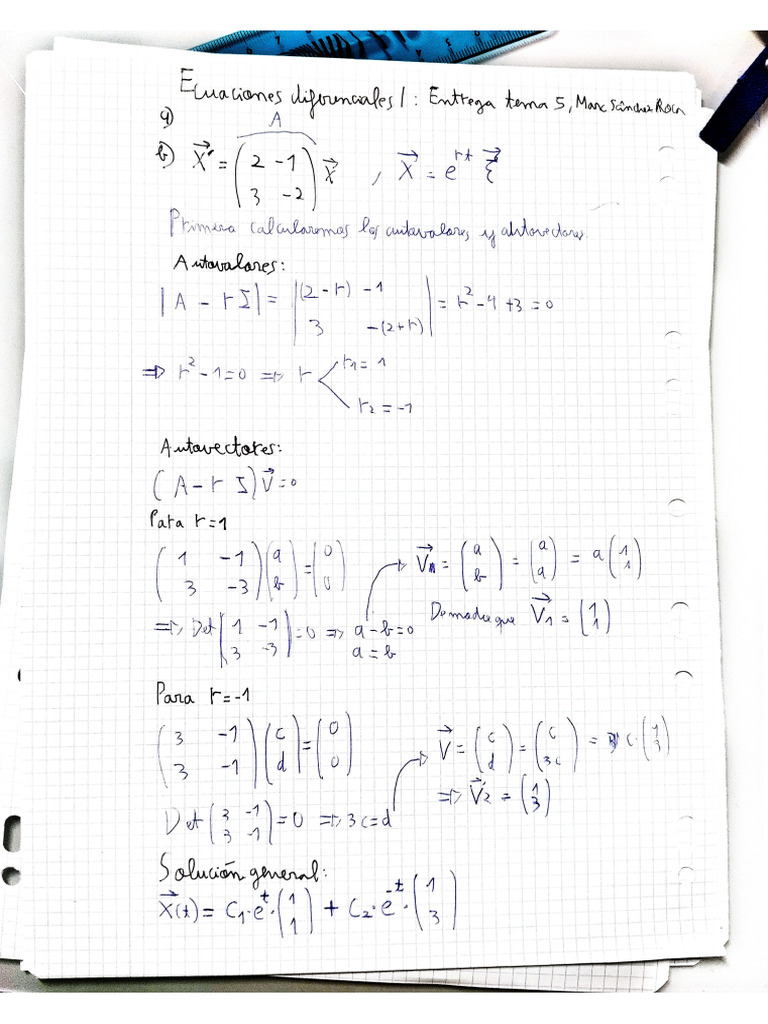 Ecuaciones diferenciales I: Entrega tema 5, Marc Sánchez Roca
a)
b) X⃗' = (2 -1; 3 -2) X⃗ , X⃗ = e^{rt} ξ⃗
A
Primero calcularemos los autovalores y autovectores.
Autovalores:
|A - rI| = |(2-r) -1; 3 -(2+r)| = r² - 4 + 3 = 0
⇒ r² - 1 = 0 ⇒ r < r₁ = 1
r₂ = -1
Autovectores:
(A - rI) v⃗ = 0
Para r=1
(1 -1; 3 -3)(a; b) = (0; 0) → V⃗₁ = (a; b) = (a; a) = a(1; 1)
⇒ Det(1 -1; 3 -3) = 0 ⇒ a - b = 0 De modo que V⃗₁ = (1; 1)
a = b
Para r=-1
(3 -1; 3 -1)(c; d) = (0; 0) → V⃗ = (c; d) = (c; 3c) = c·(1; 3)
Det(3 -1; 3 -1) = 0 ⇒ 3c = d ⇒ V⃗₂ = (1; 3)
Solución general:
X⃗(t) = C₁·e^t·(1; 1) + C₂·e^{-t}·(1; 3)